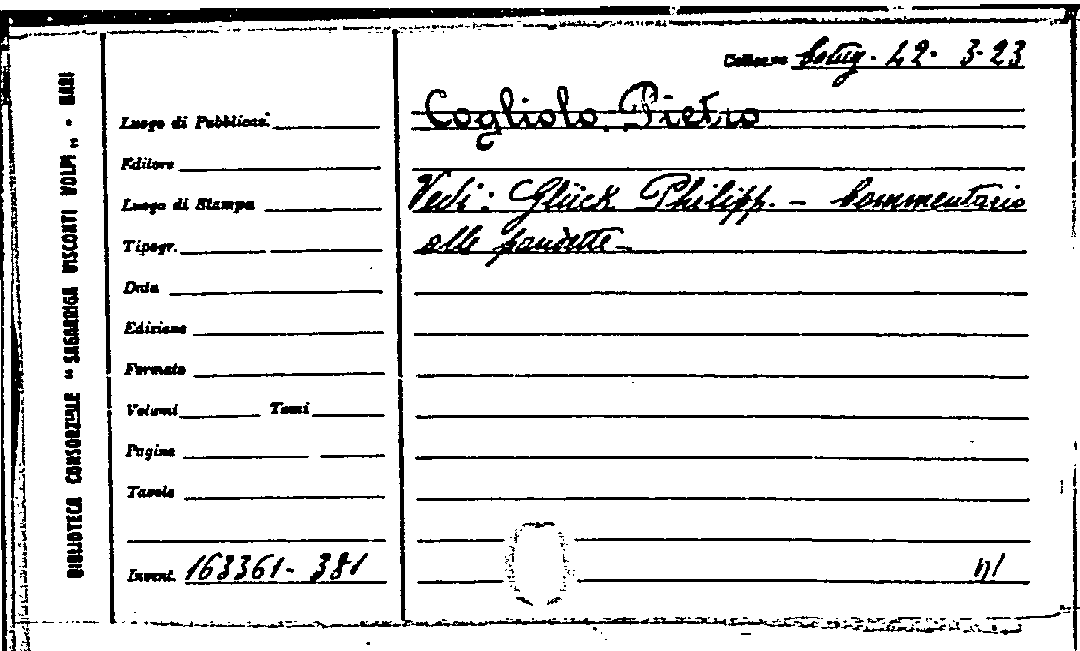 BIBLIOTECA CONSORZIALE "SAGARRIGA VISCONTI VOLPI" - BARI
Collocaz. Cons. 42- 3-23
Cogliolo, Pietro
Luogo di Pubblicaz.
Editore
Vedi: Glück Philipp. - Commentario
Luogo di Stampa
alle pandette-
Tipogr.
Data
Edizione
Formato
Volumi Tomi
Pagine
Tavole
Invent. 163361- 381